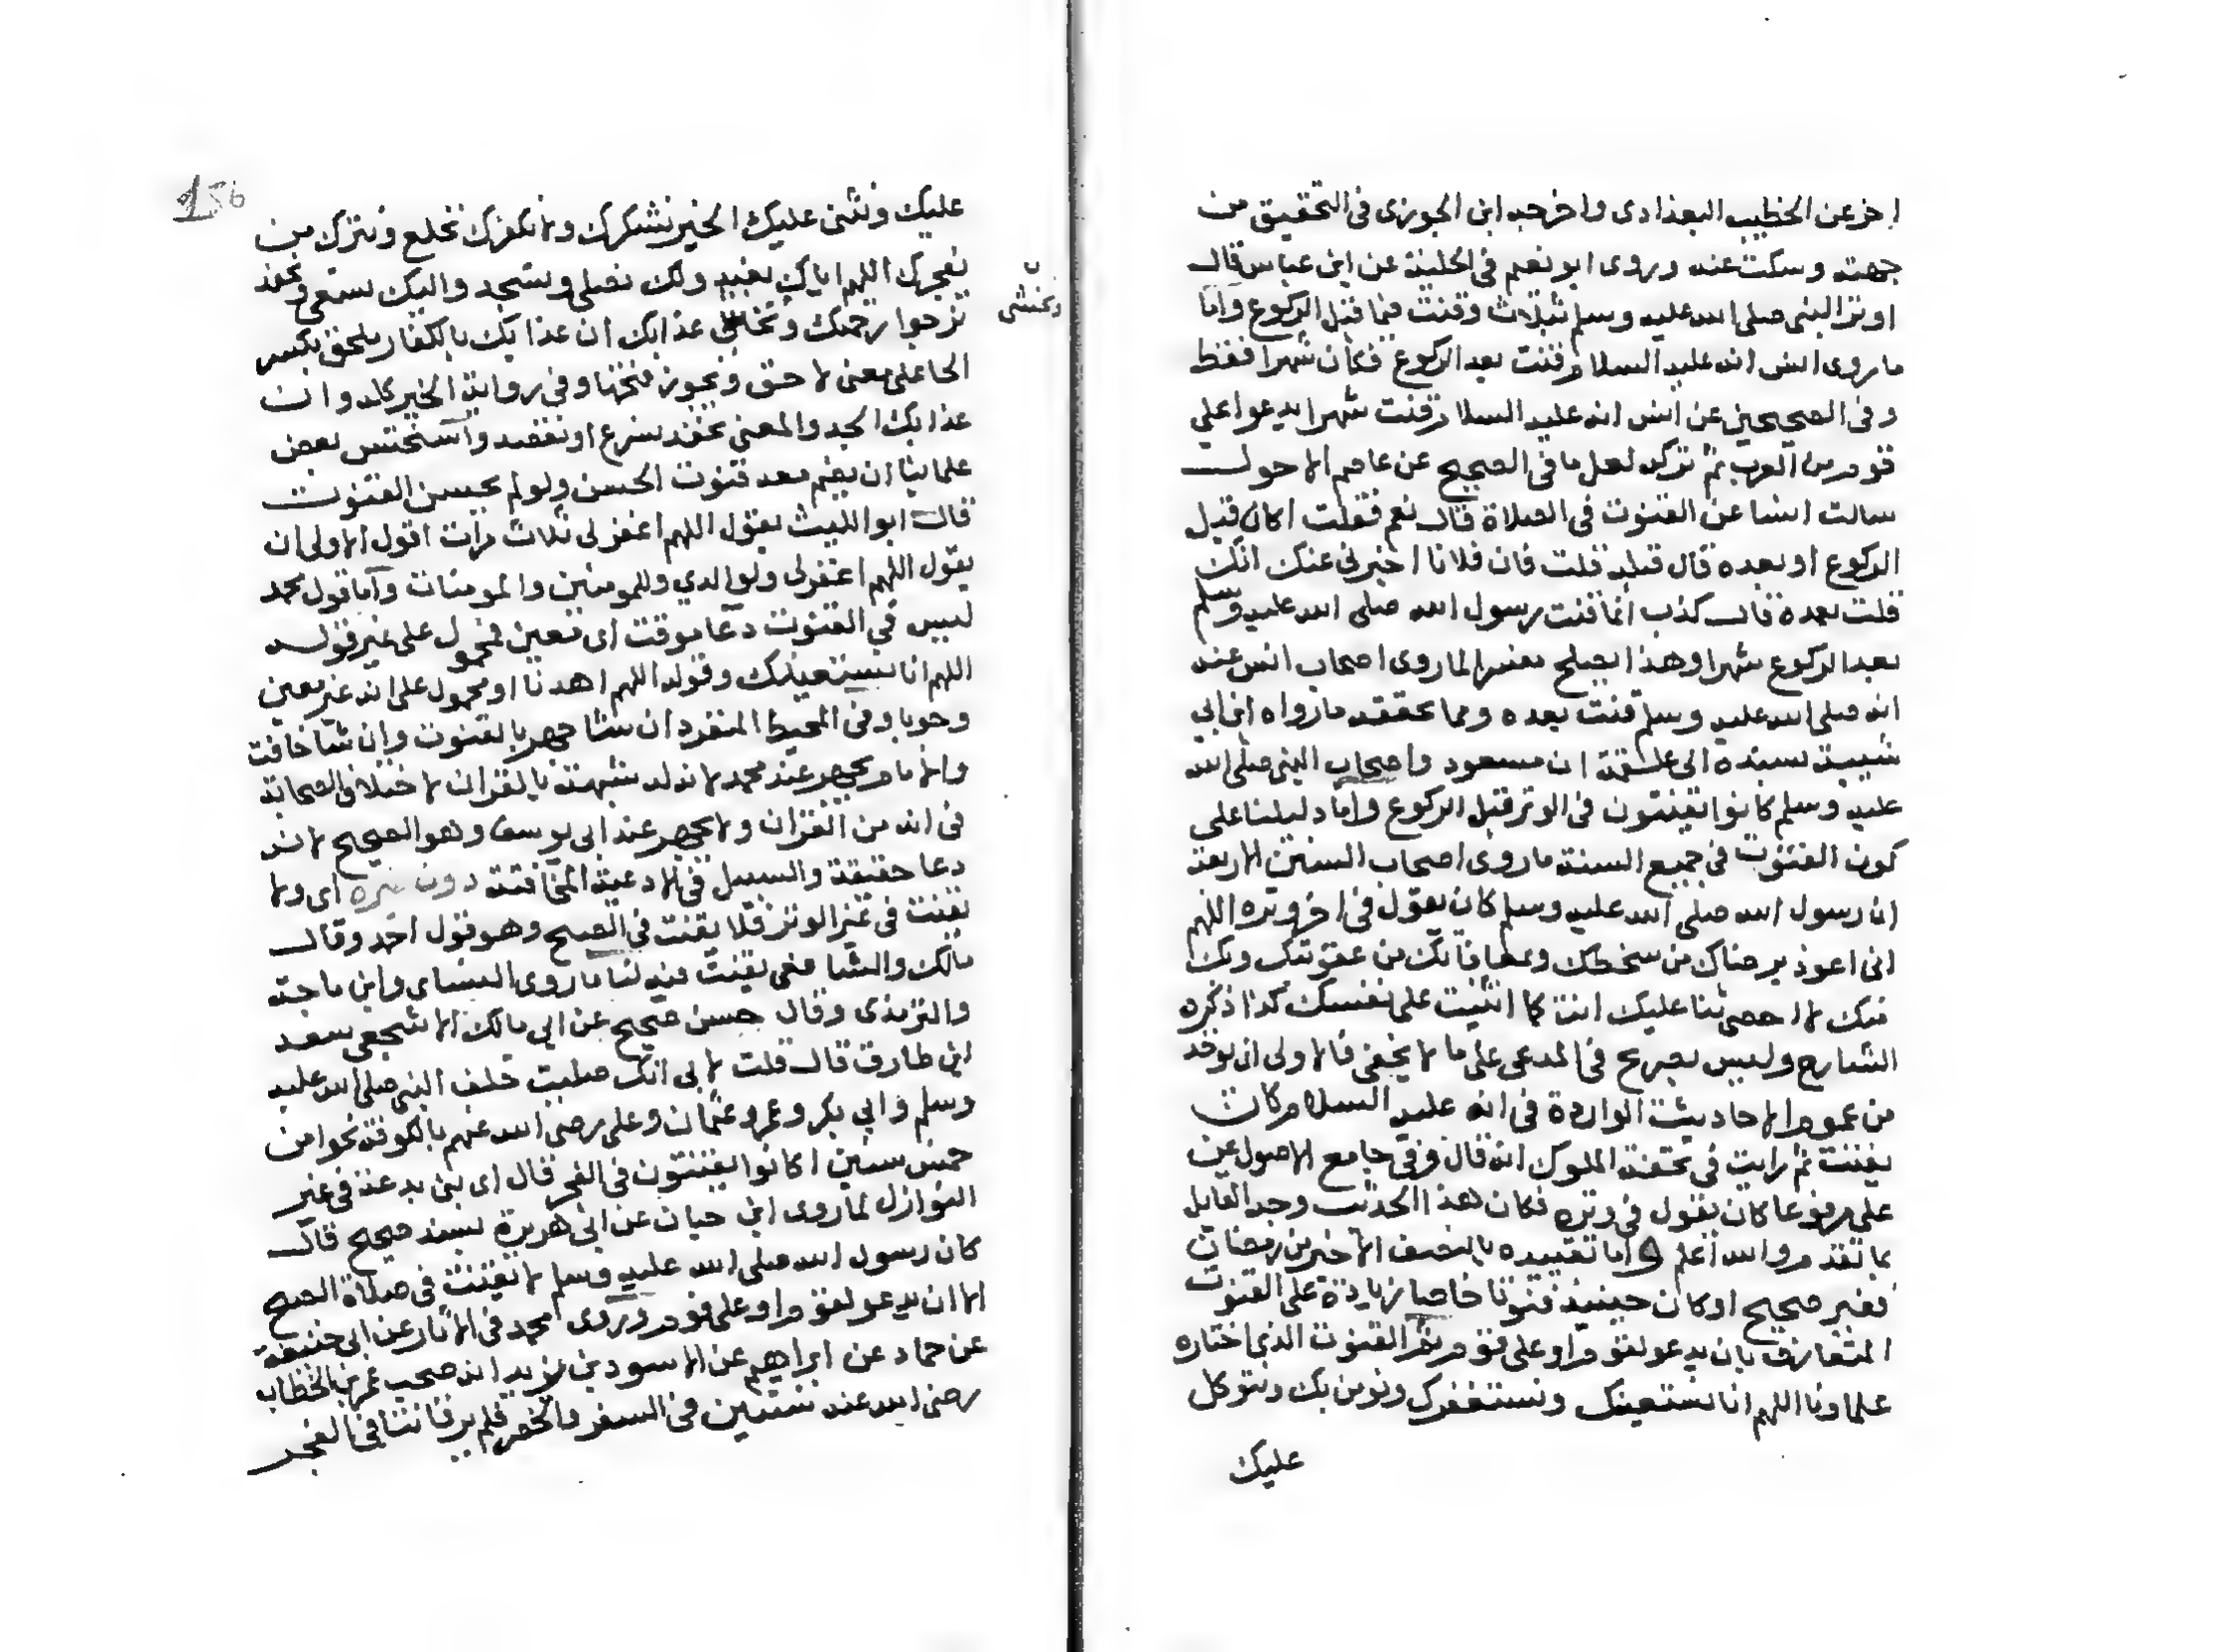 اخر عن الخطيب البغدادى واخرجه ابن الجوزى فى التحقيق من
جهته وسكت عنه وروى ابو نعيم فى الحلية عن ابن عباس قال
اوتر النبى صلى الله عليه وسلم بثلاث وقنت فيها قبل الركوع واما
ما روى انس انه عليه السلام قنت بعد الركوع فكان شهرا فقط
وفى الصحيحين عن انس انه عليه السلام قنت شهرا يدعوا على
قوم من العرب ثم تركه لعل ما فى الصحيح عن عاصم الاحول
سالت انسا عن القنوت فى الصلاة قال نعم فقلت اكان قبل
الركوع او بعده قال قبله قلت فان فلانا اخبرنى عنك انك
قلت بعده قال كذب انما قنت رسول الله صلى الله عليه وسلم
بعد الركوع شهرا وهذا يصلح مفسرا لما روى اصحاب انس عنه
انه صلى الله عليه وسلم قنت بعده ومما يحققه ما رواه ابن ابى
شيبة بسنده الى علقمة ان مسعود واصحاب النبى صلى الله
عليه وسلم كانوا يقنتون فى الوتر قبل الركوع واما دليلنا على
كون القنوت فى جميع السنة ما روى اصحاب السنن الاربعة
ان رسول الله صلى الله عليه وسلم كان يقول فى اخر وتره اللهم
انى اعوذ برضاك من سخطك وبمعافاتك من عقوبتك وبك
منك لا احصى ثنا عليك انت كما اثنيت على نفسك كذا ذكره
الشارح وليس بصريح فى المدعى على ما لا يخفى فالاولى ان يوخذ
من عموم الاحاديث الواردة فى انه عليه السلام كان
يقنت ثم رايت فى تحفة الملوك انه قال وفى جامع الاصول عن
على مرفوعا كان يقول فى وتره فكان هذا الحديث وجه القايل
بما تقدم والله اعلم واما تقييده بالنصف الاخير من رمضان
فغير صحيح او كان حينيذ قنوتا خاصا زيادة على القنوت
المتعارف بان يدعو لقوم او على قوم ثم القنوت الذى اختاره
علماونا اللهم انا نستعينك ونستغفرك ونومن بك ونتوكل
عليك
156
عليك ونثنى عليك الخير نشكرك ولا نكفرك نخلع ونترك من
يفجرك اللهم اياك نعبد ولك نصلى ونسجد واليك نسعى ونحفد
نرجوا رحمتك ونخشى عذابك ان عذابك بالكفار ملحق بكسر
ونخشى
الحا على معنى لاحق ويجوز فتحها وفى رواية الخير كله وان
عذابك الجد والمعنى نحفد نسرع او نقصد واستحسن بعض
علمائنا ان يضم معه قنوت الحسن ولو لم يحسن القنوت
قال ابو الليث يقول اللهم اغفر لى ثلاث مرات اقول الاولى ان
يقول اللهم اغفر لى ولوالدي وللمومنين والمومنات واما قول محمد
ليس فى القنوت دعا موقت اى معين فمحمول على غير قوله
اللهم انا نستعينك وقوله اللهم اهدنا او محمول على انه غير معين
وجوبا وفى المحيط المنفرد ان شا جهر بالقنوت وان شا خافت
والامام يجهر عند محمد لانه له شبهة بالقران لاختلاف الصحابة
فى انه من القران ولا يجهر عند ابى يوسف وهو الصحيح لانه
دعا حقيقة والسبيل فى الادعية المخافتة دون غيره اى ولا
يقنت فى غير الوتر فلا يقنت فى الصبح وهو قول احمد وقال
مالك والشافعى يقنت فيه لنا ما روى النساى وابن ماجة
والترمذى وقال حسن صحيح عن ابى مالك الاشجعى سعد
ابن طارق قال قلت لابى انك صليت خلف النبى صلى الله عليه
وسلم وابى بكر وعمر وعثمان وعلى رضى الله عنهم بالكوفة نحوا من
خمس سنين اكانوا يقنتون فى الفجر قال اى بنى بدعة فى غير
النوازل لما روى ابن حبان عن ابى هريرة بسند صحيح قال
كان رسول الله صلى الله عليه وسلم لا يقنت فى صلاة الصبح
الا ان يدعو لقوم او على قوم وروى محمد فى الاثار عن ابى حنيفة
عن حماد عن ابراهيم عن الاسود بن يزيد انه صحب عمر بن الخطاب
رضى الله عنه سنتين فى السفر والحضر فلم يره قانتا فى الفجر